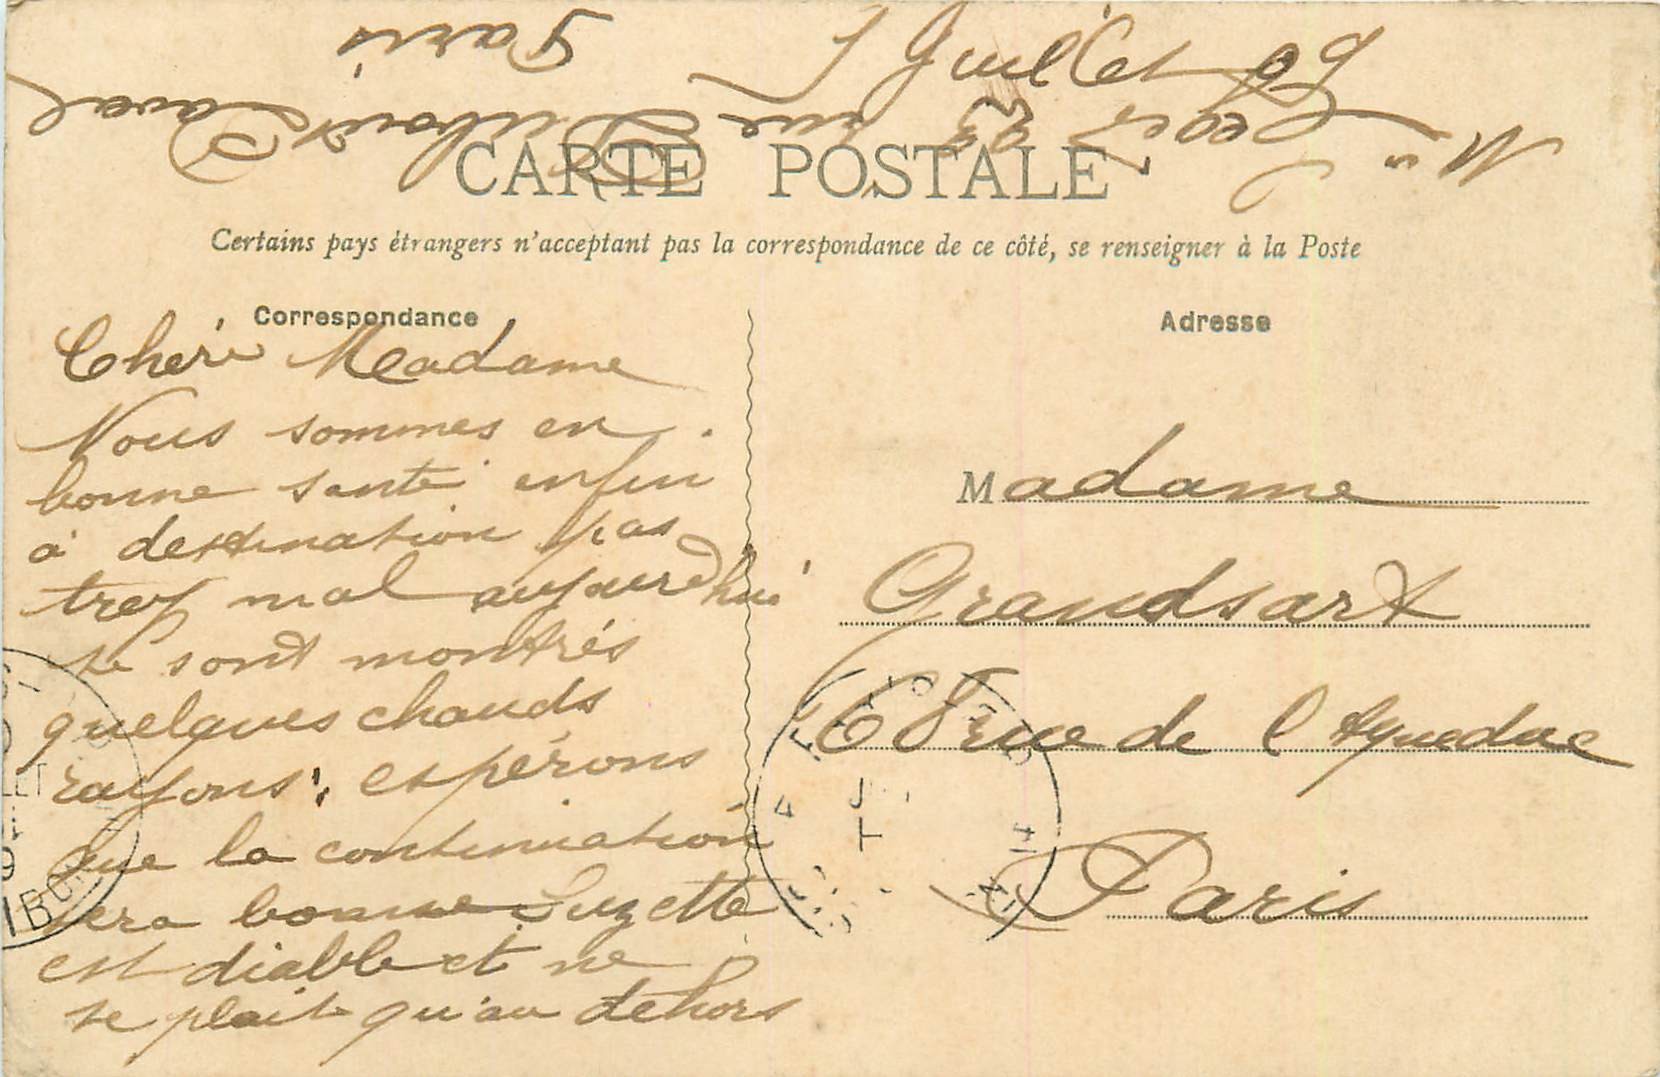 5 Juillet 09
CARTE POSTALE
Certains pays étrangers n'acceptant pas la correspondance de ce côté, se renseigner à la Poste
Correspondance
Chérie Madame
Nous sommes en
bonne santé enfin
à destination pas
trop mal aujourd'hui
se sont montrés
quelques chauds
rayons, espérons
que la continuation
sera bonne Suzette
est diable et ne
se plait qu'au dehors
Adresse
Madame
Grandsart
68 rue de l'Aqueduc
Paris
Mme Leger 23 rue
Paris